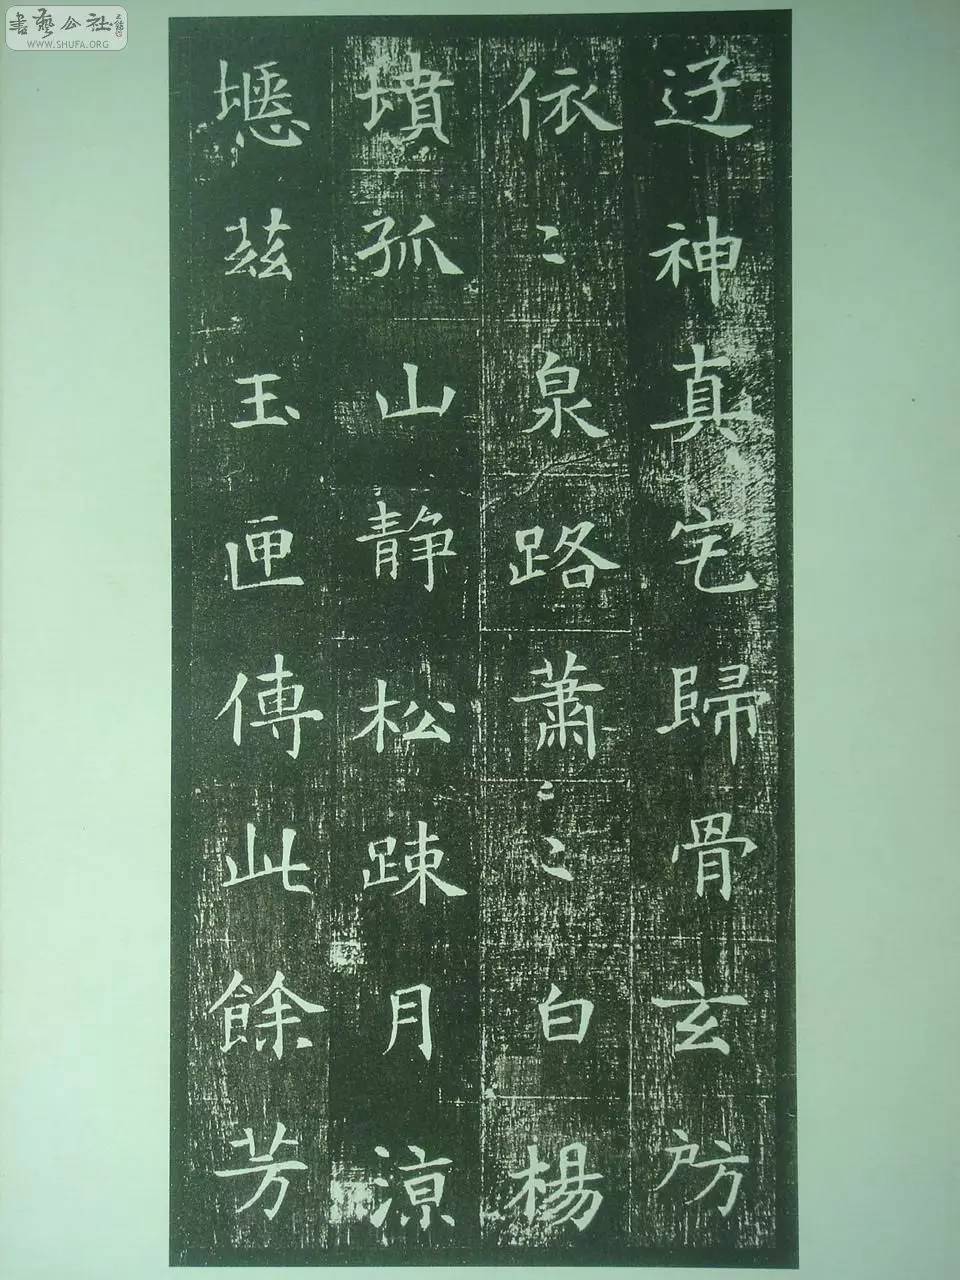 書藝公社
WWW.SHUFA.ORG
遊神真宅歸骨玄房
依〻泉路蕭〻白楊
墳孤山静松踈月涼
瘞茲玉匣傳此餘芳